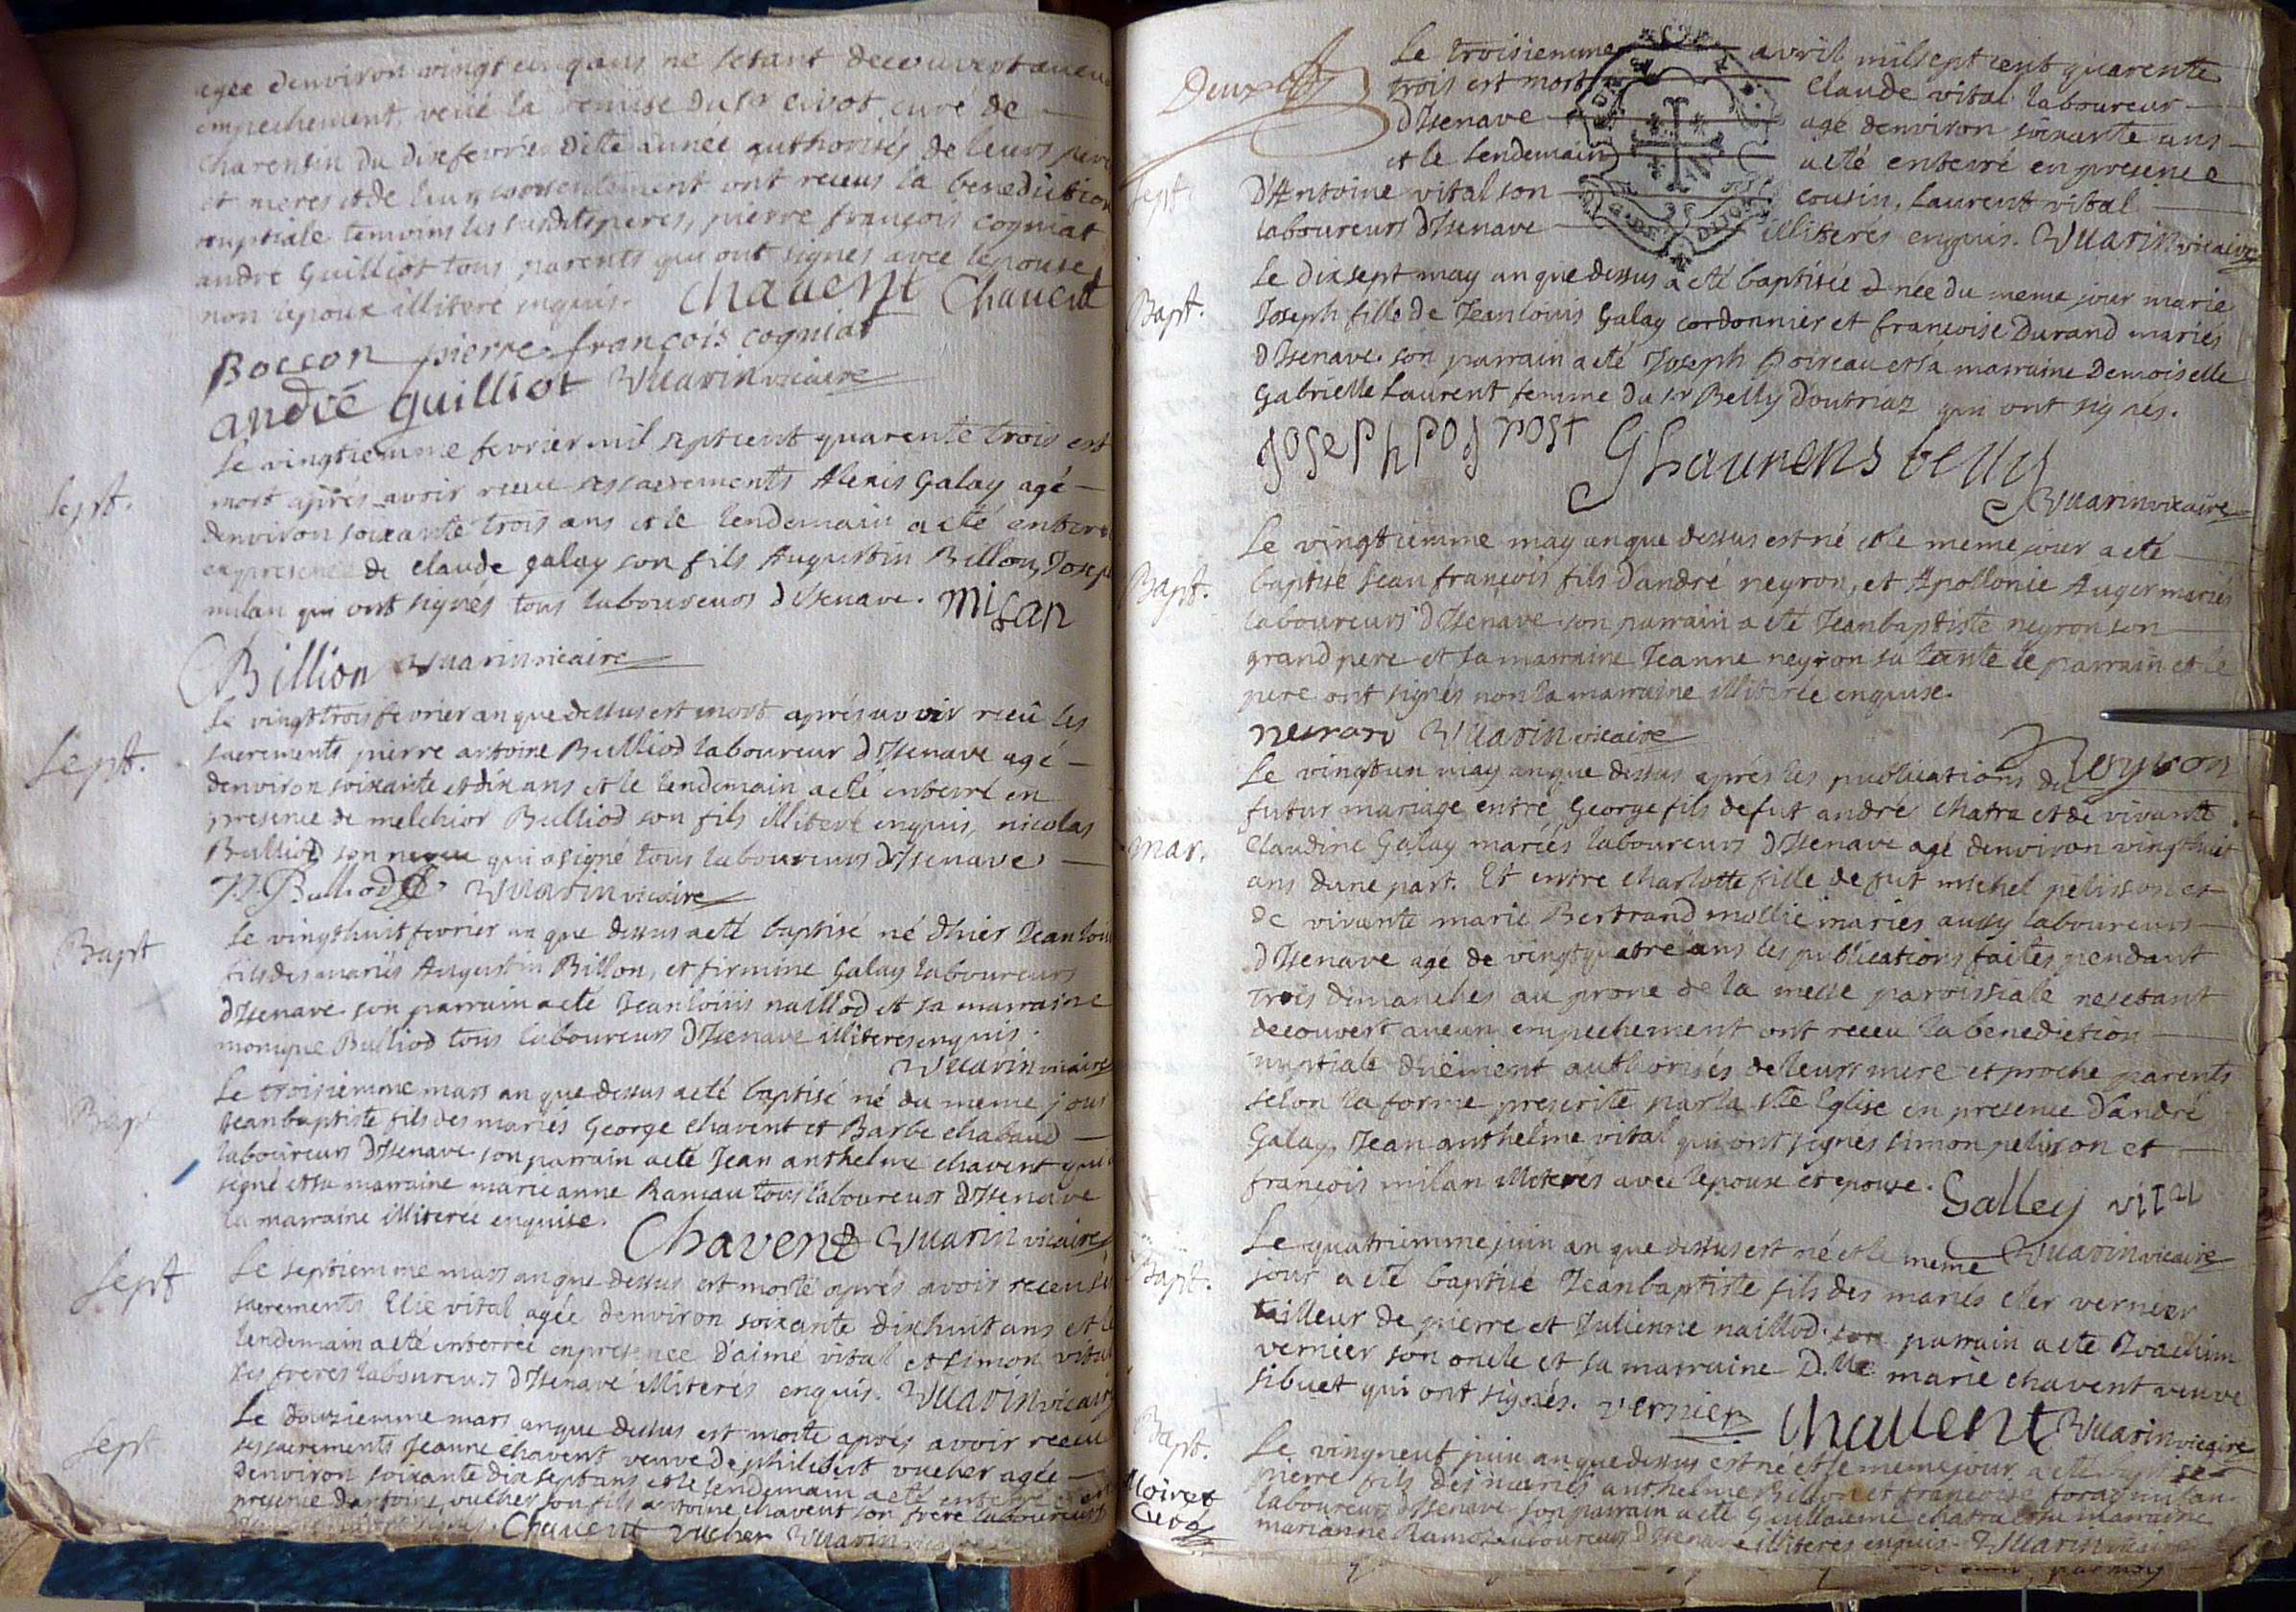 agée denviron vingt cinq ans ne setant decouvert aucun
empechement, veüe la remise du sr civot, curé de
charentin du dix fevrier dite année authorisés de leurs pere
et meres et de leur consentement ont receus la benediction
nuptiale temoins les susdits peres, pierre françois cogniat
andre Guilliot tous parents qui ont signes avec lepouse
non lepoux illiteré enquis. Chavent Chavent
Boccon pierre françois cogniat
andré guilliot Vuarin vicaire
Sept.
Le vingtiemme fevrier mil sept cent quarente trois est
mort aprés avoir receu ses sacrements Alexis Galay agé
denviron soixante trois ans et le lendemain a eté enterré
en presence de claude galay son fils Augustin Billon, Josep
milan qui ont signés tous laboureurs dIsenave. milan
Billion Vuarin vicaire
Sept.
Le vingt trois fevrier an que dessus est mort aprés avoir receü les
sacrements pierre antoine Bulliod laboureur dIsenave agé
denviron soixante et dix ans et le lendemain a eté enterré en
presence de melchior Bulliod son fils illiteré enquis, nicolas
Bulliod son neveu qui a signé tous laboureurs dIsenave
N. Bulliod Vuarin vicaire
Bapt
Le vingt huit fevrier an que dessus a eté baptisé né dhier Jean loui
fils des mariés Augustin Billon, et firmine Galay laboureurs
dIsenave son parrain a eté Jean loüis naillod et sa marraine
monique Bulliod tous laboureurs dIsenave illiteres enquis.
Vuarin vicaire
Bap
Le troisiemme mars an que dessus a eté baptisé né du meme jour
Jean baptiste fils des mariés George chavent et Barbe chabaud
laboureurs dIsenave son parrain a eté Jean anthelme chavent qui a
signé et sa marraine marie anne Rameau tous laboureurs dIsenave
la marraine illiterée enquise. Chavent Vuarin vicaire
Sept
Le septiemme mars an que dessus est morte aprés avoir receu les
sacrements Elie vital agée denviron soixante dix huit ans et le
lendemain a eté enterrée en presence d'aimé vital et simon vital
ses freres laboureurs dIsenave illiterés enquis. Vuarin vicaire
Sept
Le douziemme mars an que dessus est morte aprés avoir receu
ses sacrements Jeanne chavent veuve de philibert vucher agée
denviron soixante dix sept ans et le lendemain a eté enterrée en
presence dantoine vucher son fils antoine chavent son frere laboureurs
Chavent vucher Vuarin vicaire
Deux
Le troisiemme avril mil sept cent quarente
trois est mort Claude vital laboureur
dIsenave agé denviron soixante ans
et le lendemain a eté enterré en presence
Sept.
d'Antoine vital son cousin, Laurent vital
laboureurs dIsenave illiterés enquis. Vuarin vicaire
Bapt.
Le dix sept may an que dessus a eté baptisée et née du meme jour marie
Joseph fille de Jean louis Galay cordonnier et francoise Durand mariés
dIsenave. son parrain a eté Joseph Poireau et sa marraine Demoiselle
Gabrielle Laurent femme du sr Belly doutriaz qui ont signés.
Joseph poy rost G Laurens belly
Vuarin vicaire
Bapt.
Le vingtiemme may an que dessus est né et le meme jour a eté
baptisé Jean françois fils dandré neyron, et Apollonie Auger mariés
laboureurs dIsenave son parrain a eté Jean baptiste neyron son
grand pere et sa marraine Jeanne neyron sa tante le parrain et le
pere ont signés non la marraine illiterée enquise.
neuron Vuarin vicaire Neyron
mar.
Le vingt un may an que dessus aprés les publications du
futur mariage entre George fils de fut andré chatra et de vivante
Claudine Galay mariés laboureurs dIsenave agé denviron vingt huit
ans dune part. Et entre charlotte fille de fut michel pelisson et
de vivante marie Bertrand mollie mariés aussy laboureurs
dIsenave agé de vingt quatre ans les publications faites pendant
trois dimanches au prone de la messe paroissiale ne setant
decouvert aucun empechement ont receu la benediction
nuptiale düement authorisés de leurs mere et proche parents
selon la forme prescrite par la Ste Eglise en presence dandré
Galay, Jean anthelme vital qui ont signés simon pelisson et
francois milan illiterés avec lepoux et epouse. Galley vital
Vuarin vicaire
Bapt.
Le quatriemme juin an que dessus est né et le meme
jour a eté baptisé Jean baptiste fils des mariés cler vernier
tailleur de pierre et Julienne naillod. son parrain a eté Joachim
vernier son oncle et sa marraine D.lle marie chavent veuve
sibuet qui ont signés. vernier Chavent Vuarin vicaire
Bapt.
Le vingneuf juin an que dessus est né et le meme jour a eté baptisé
pierre fils des mariés anthelme Billion et francoise
laboureurs dIsenave son parrain a eté Guillaume chatra et sa marraine
marianne Ramoz laboureurs dIsenave illiteres enquis. Vuarin vicaire
Moiret
Curé
par moy